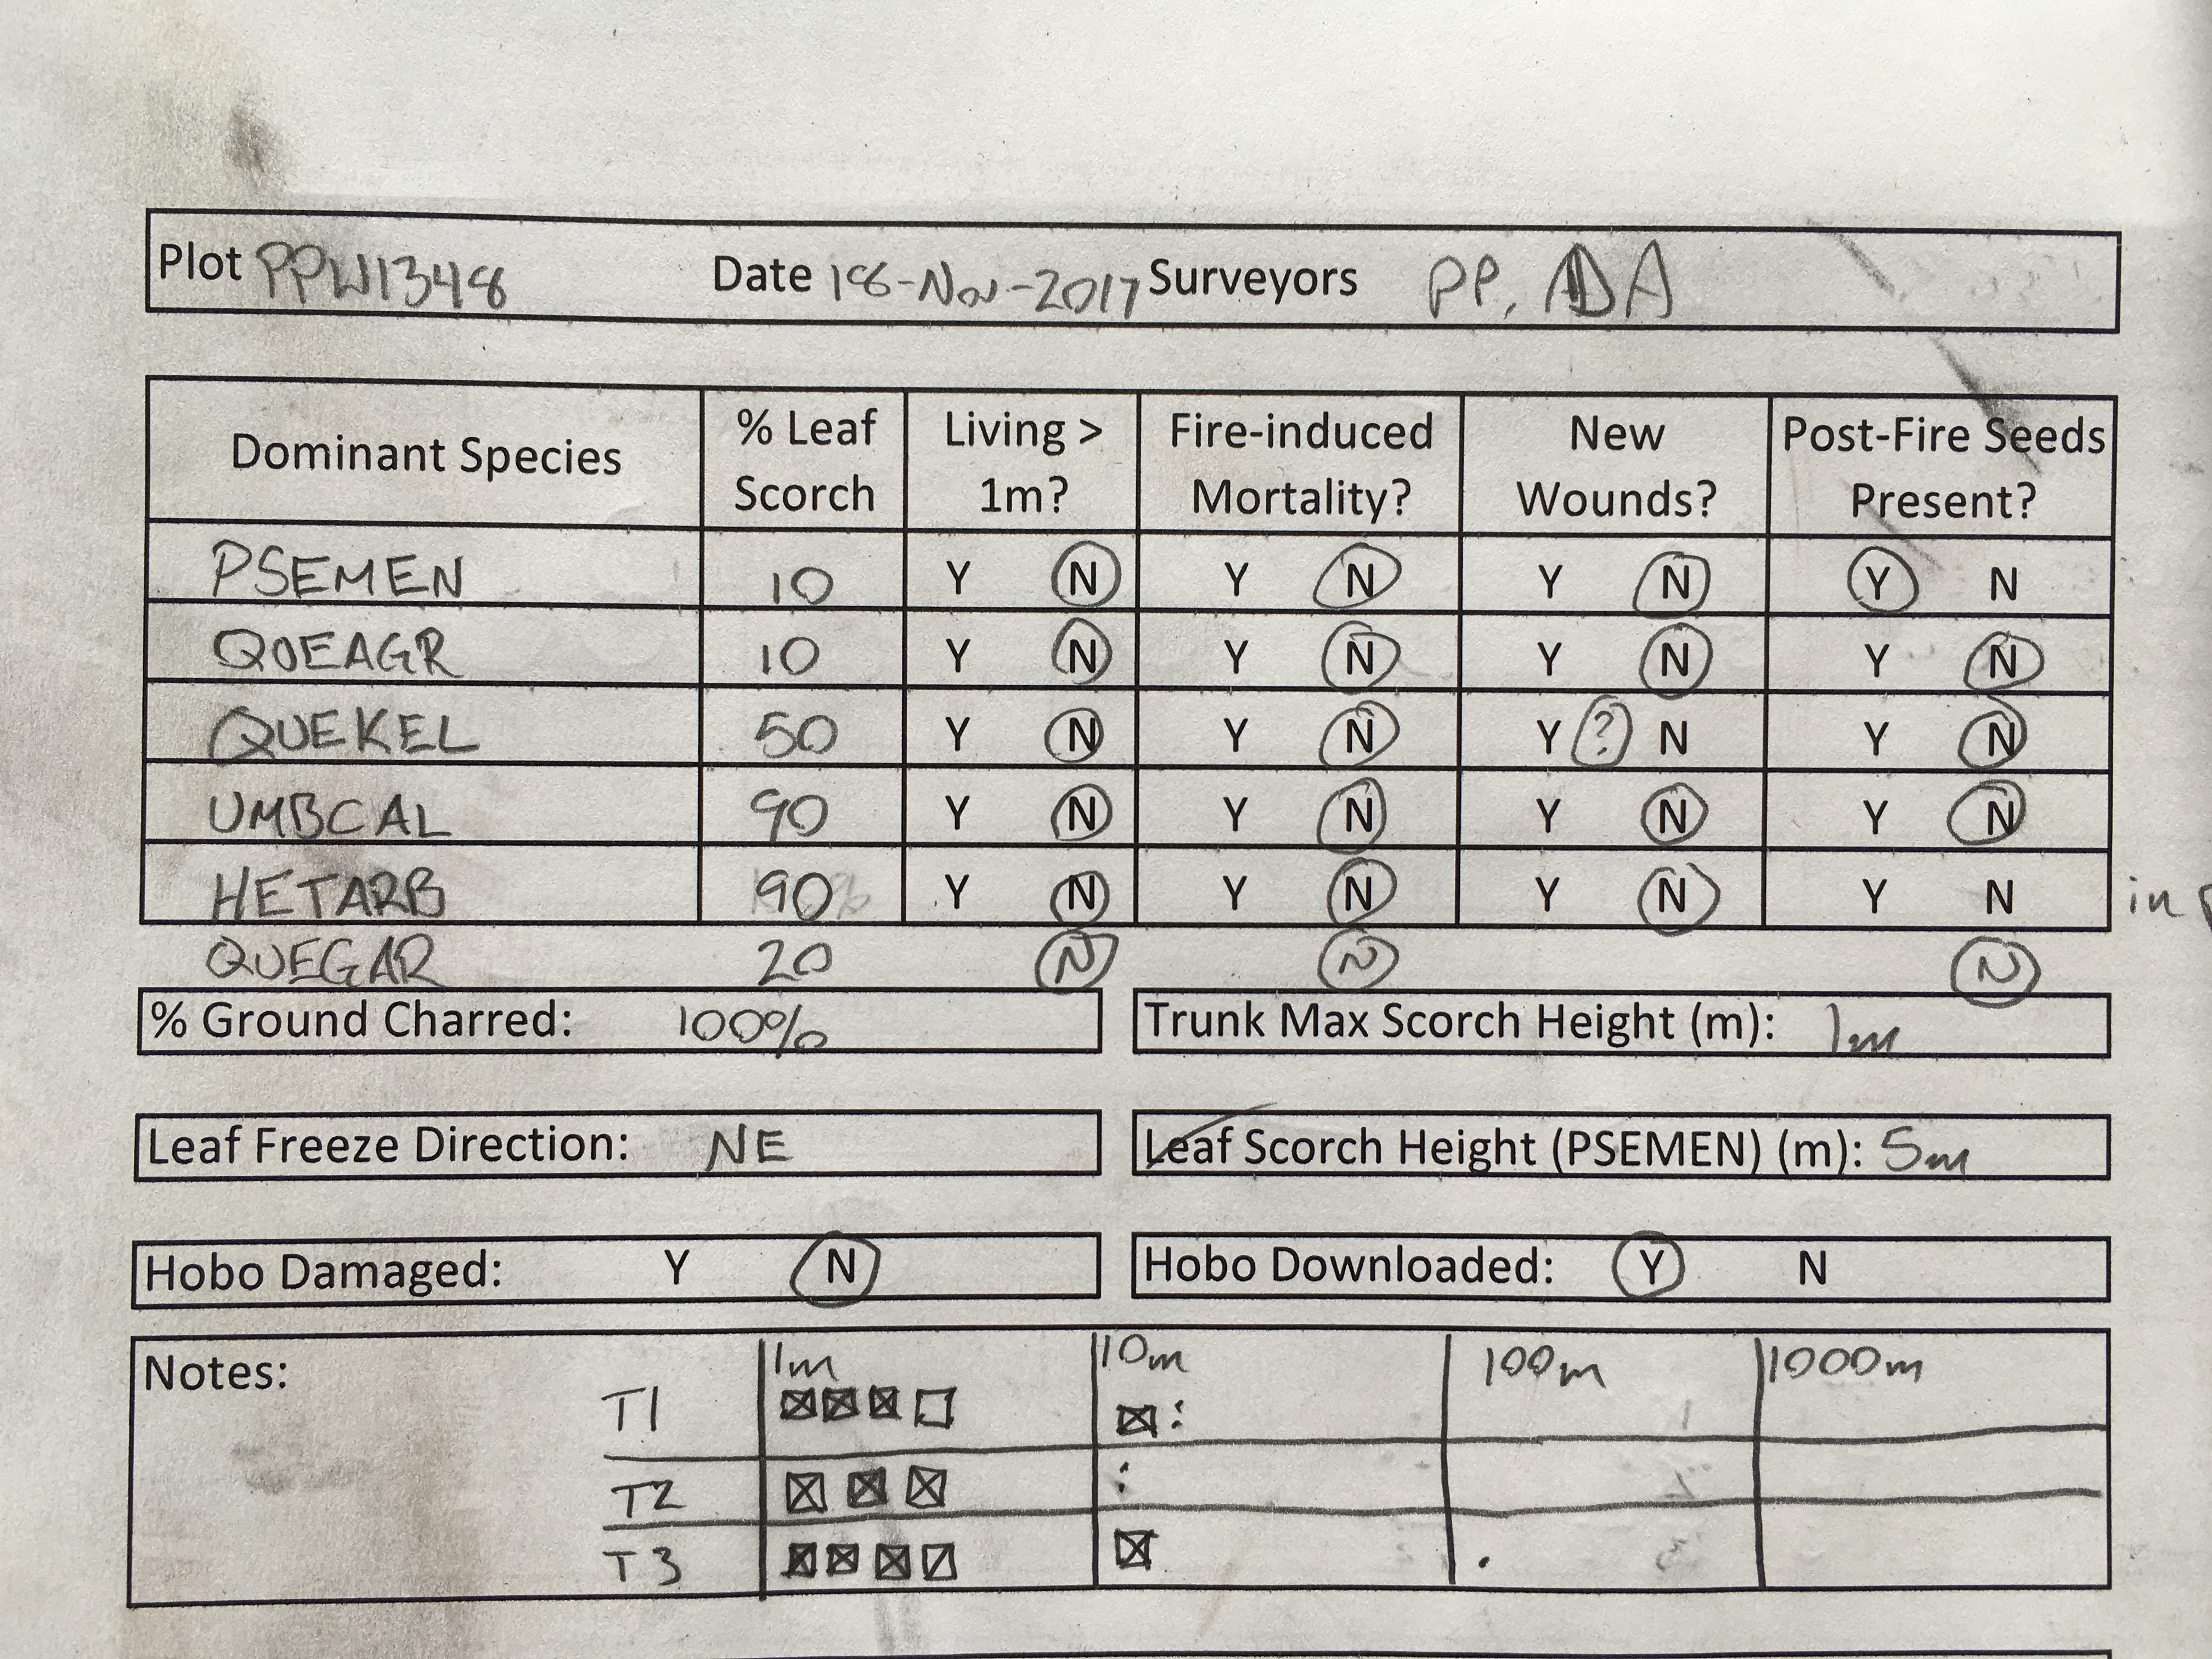 Plot PPW1348 Date 18-Nov-2017 Surveyors PP, DA
Dominant Species % Leaf Scorch Living > 1m? Fire-induced Mortality? New Wounds? Post-Fire Seeds Present?
PSEMEN 10 Y N Y N Y N Y N
QUEAGR 10 Y N Y N Y N Y N
QUEKEL 50 Y N Y N Y ? N Y N
UMBCAL 90 Y N Y N Y N Y N
HETARB 90% Y N Y N Y N Y N in
QUEGAR 20 N N N
% Ground Charred: 100% Trunk Max Scorch Height (m): 1m
Leaf Freeze Direction: NE Leaf Scorch Height (PSEMEN) (m): 5m
Hobo Damaged: Y N Hobo Downloaded: Y N
Notes: 1m 10m 100m 1000m
T1
T2
T3